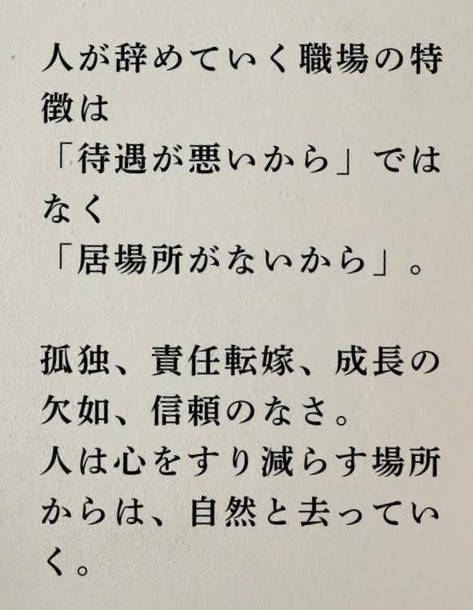 人が辞めていく職場の特
徴は
「待遇が悪いから」では
なく
「居場所がないから」。
孤独、責任転嫁、成長の
欠如、信頼のなさ。
人は心をすり減らす場所
からは、自然と去ってい
く。